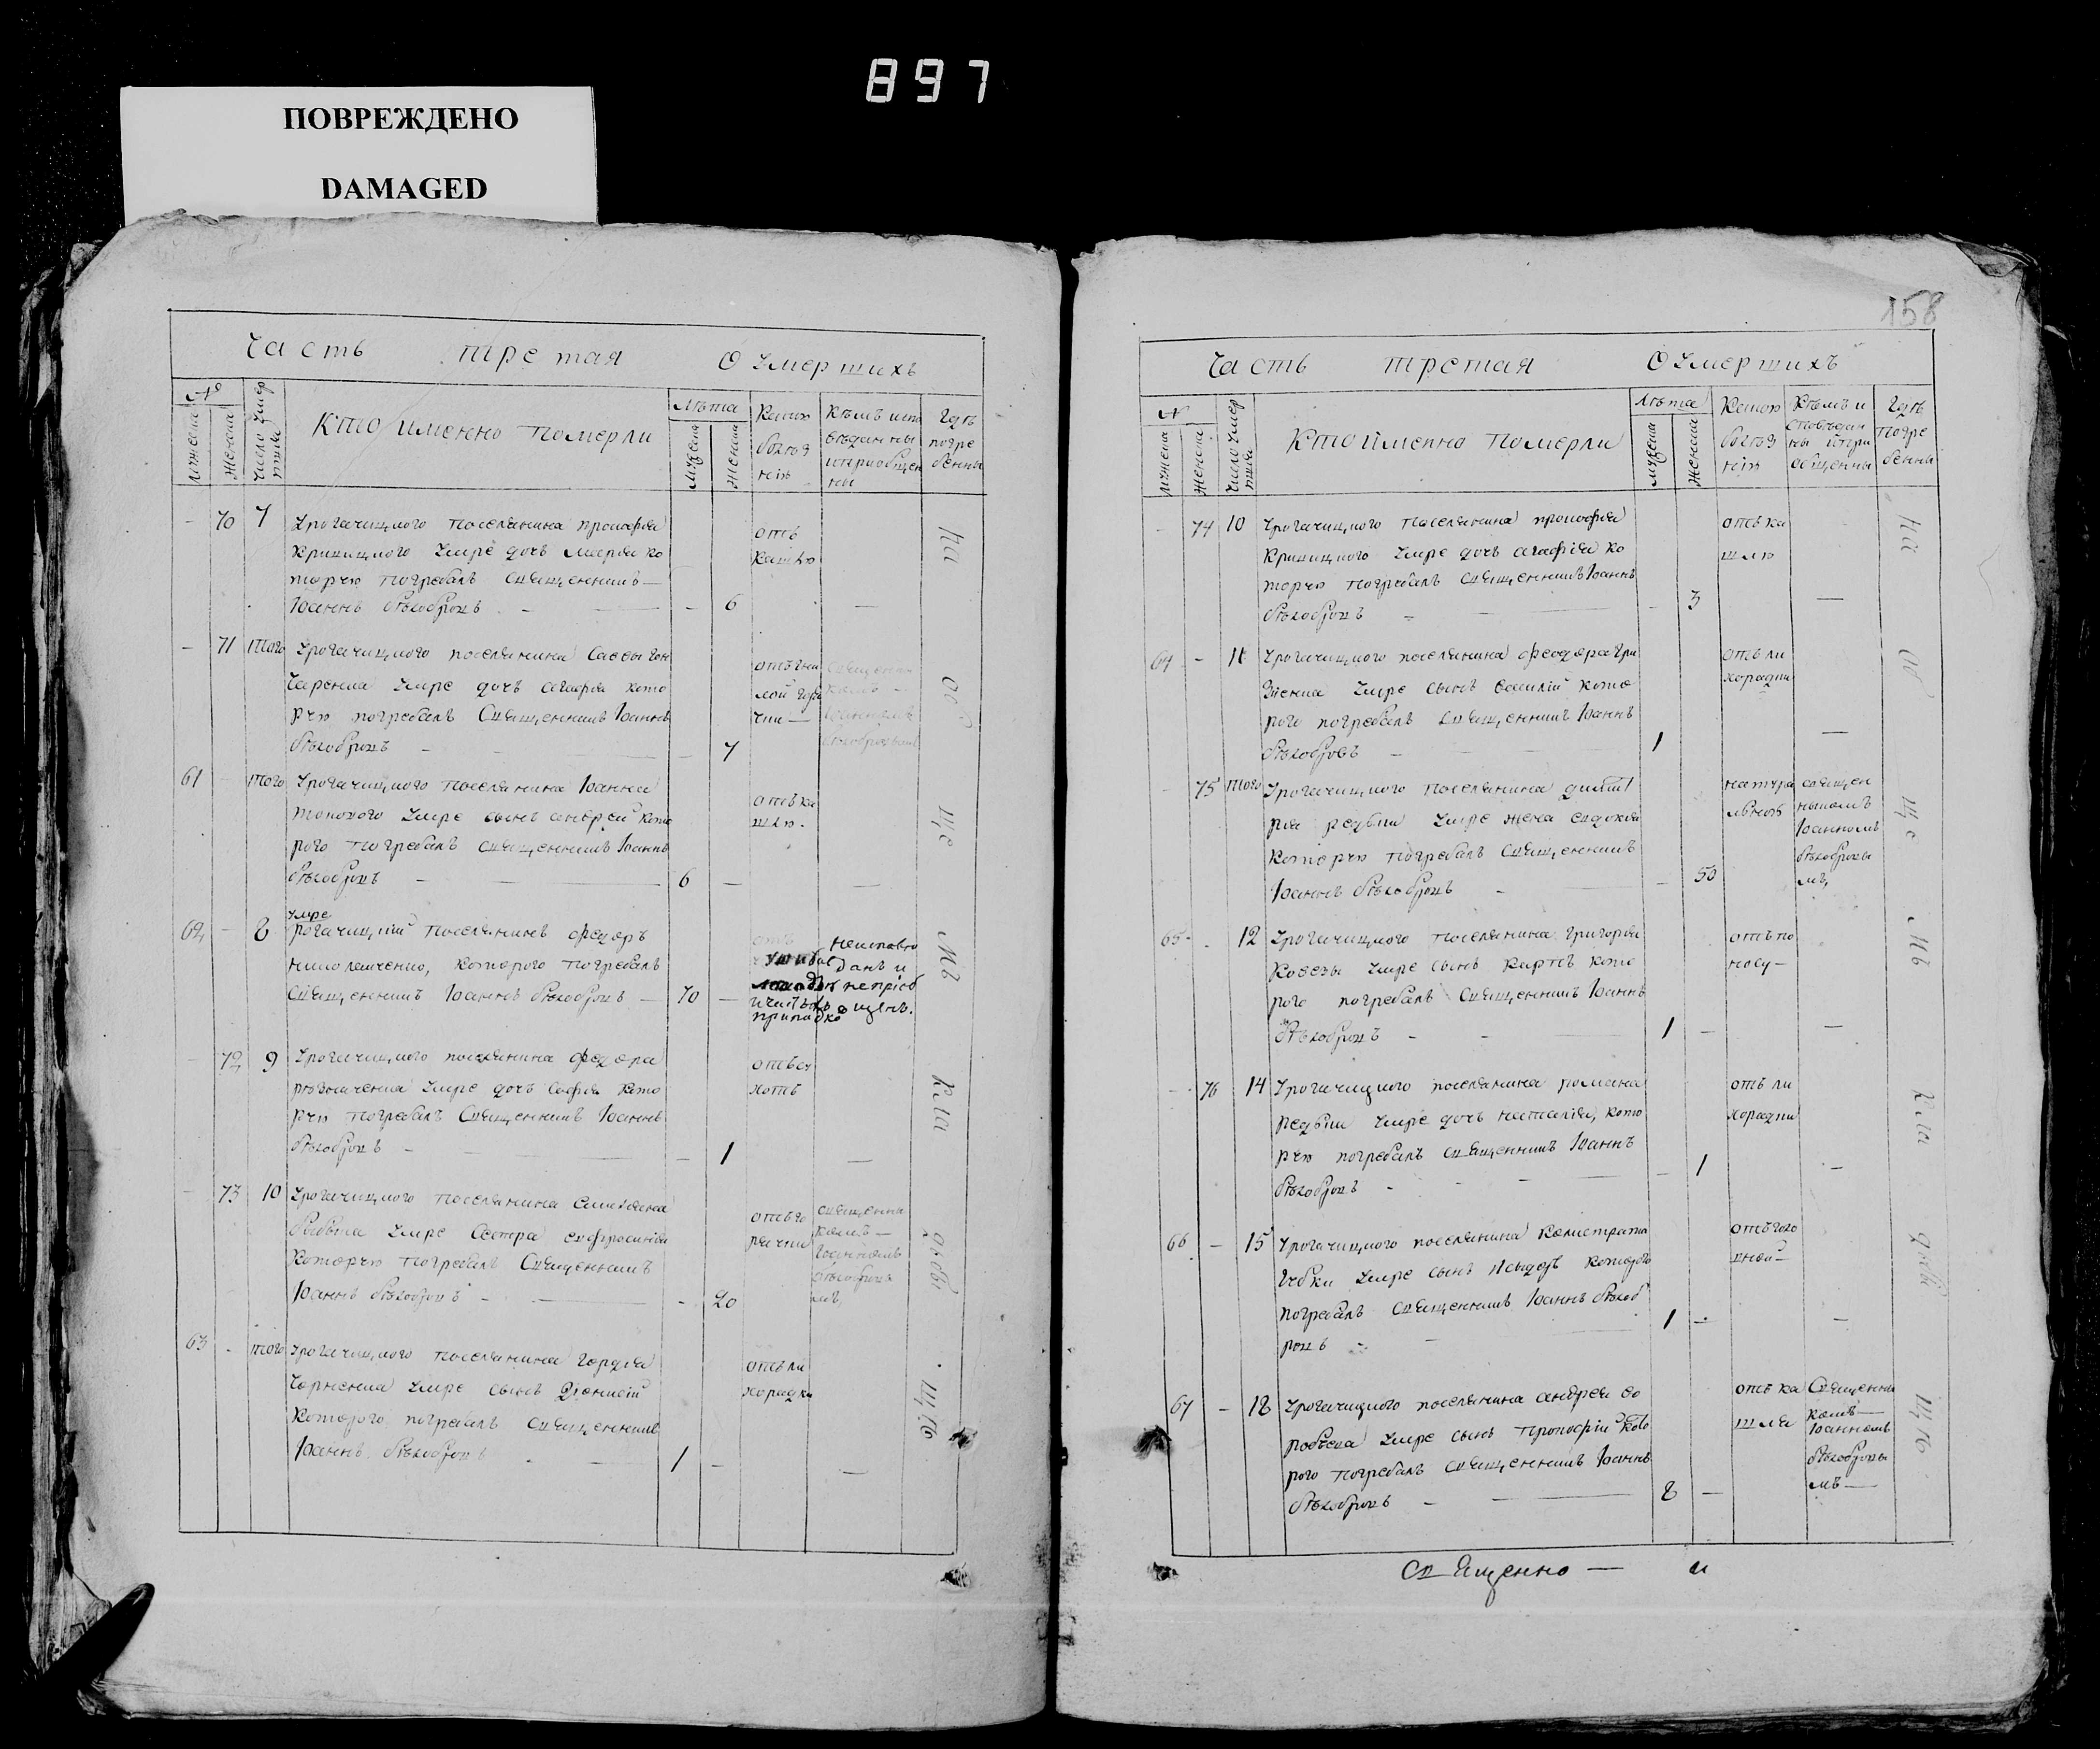 897
ПОВРЕЖДЕНО
DAMAGED
158
Часть третая О Умершихъ
№
мужеска
женска
число умер
шим
Кто именно померли
Лѣта
мужеска
женска
Кекою
болѣз
нію
Кѣмъ испо
вѣданны
и приобщен
ны
Гдѣ
погре
бенны
70 7 Урогачицкого поселянина прокофія
Криницкого Умре дочь Марія ко
торую погребалъ Священникъ
Іоаннъ бѣлобровъ 6
отъ
кашлю
71 того Урогачицкого поселянина Саввы гон
чаренка Умре дочь агафія кото
рую погребалъ Священникъ Іоаннъ
бѣлобровъ 7
отъ гни
лой горя
чки
61 того Урогачицкого поселянина Іоанна
Умре сынъ андрей кото
рого погребалъ Священникъ Іоаннъ
бѣлобровъ 6
отъ ка
шлю.
62 8 умре
рогачицкій поселянинъ федоръ
николаченко, которого погребалъ
Священникъ Іоаннъ бѣлобровъ 70
неисповѣ
данъ и
непріоб
щенъ.
72 9 Урогачицкого поселянина федора
Умре дочь Софія кото
рую погребалъ Священникъ Іоаннъ
бѣлобровъ 1
отъ су
хотъ
73 10 Урогачицкого поселянина Симеона
Умре Сестра ефросинія
Которую погребалъ Священникъ
Іоаннъ бѣлобровъ 20
отъ го
рячки
священни
комъ
Іоанномъ
бѣлобровы
мъ
63 того Урогачицкого поселянина Гордія
Черненка Умре сынъ Діонисій
Которого погребалъ Священникъ
Іоаннъ бѣлобровъ 1
отъ ли
хорадки
на об ще мъ кла дбы щѣ
Часть третая О Умершихъ
№
мужеска
женска
число умер
шим
Кто именно померли
Лѣта
мужеска
женска
Кекою
болѣз
нію
Кѣмъ и
споведан
ны и при
общенны
Гдѣ
погре
бенны
74 10 Урогачицкого поселянина прокофія
Криницкого Умре дочь агафія ко
торую погребалъ Священникъ Іоаннъ
бѣлобровъ 3
отъ ка
шлю
64 11 Урогачицкого поселянина феодора гри
Умре сынъ Василій кото
рого погребалъ Священникъ Іоаннъ
бѣлобровъ 1
отъ ли
хорадки
75 того Урогачицкого поселянина димит
рія редьки Умре жена евдокія
Которую погребалъ Священникъ
Іоаннъ бѣлобровъ 50
натура
льною
священ
никомъ
Іоанномъ
бѣлобровы
мъ,
65 12 Урогачицкого поселянина Григорія
Ковезы Умре сынъ Карпъ кото
рого погребалъ Священникъ Іоаннъ
бѣлобровъ 1
отъ по
носу
76 14 Урогачицкого поселянина романа
редьки Умре дочь наталія, кото
рую погребалъ Священникъ Іоаннъ
бѣлобровъ 1
отъ ли
хорадки
66 15 Урогачицкого поселянина Калистрата
Губки Умре сынъ Исидоръ которого
погребалъ Священникъ Іоаннъ бѣлоб
ровъ 1
67 18 Урогачицкого поселянина андрея во
робьева Умре сынъ прокофій кото
рого погребалъ Священникъ Іоаннъ
бѣлобровъ 8
отъ ка
шля
Священни
комъ
Іоанномъ
бѣлобровы
мъ
на об ще мъ кла дбы щѣ
Священно — и